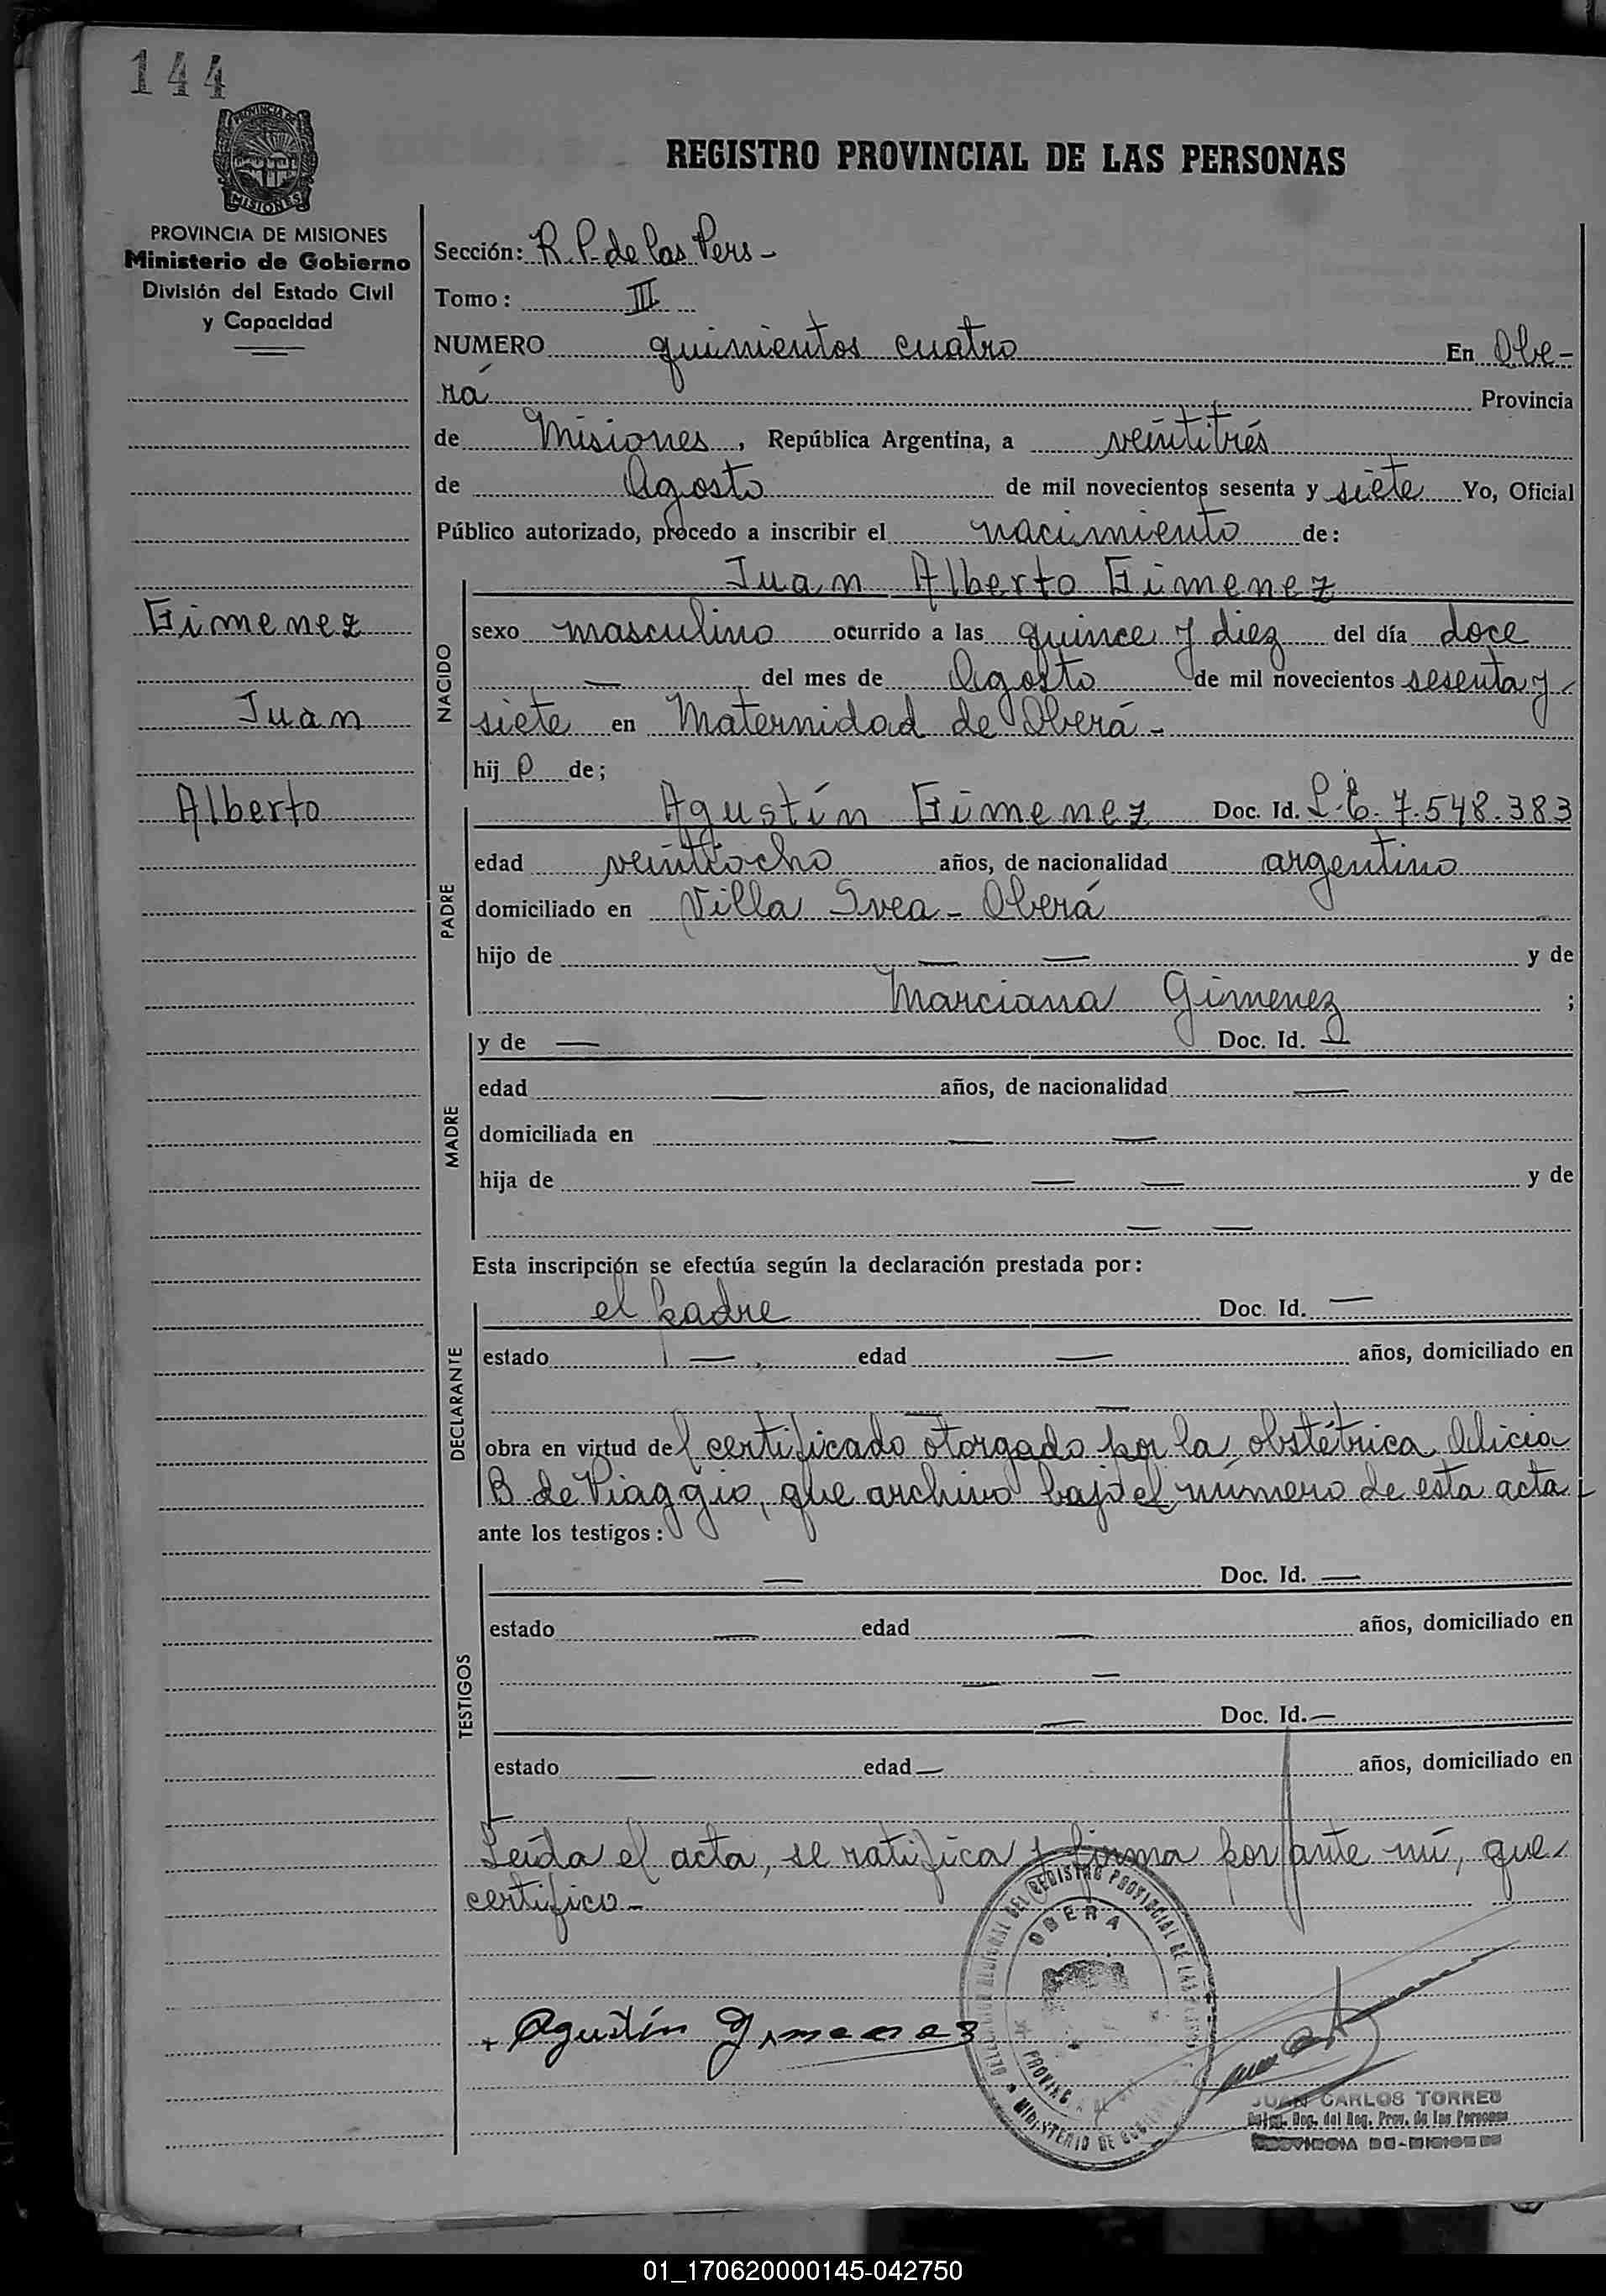 144
PROVINCIA DE
MISIONES
REGISTRO PROVINCIAL DE LAS PERSONAS
PROVINCIA DE MISIONES
Ministerio de Gobierno
División del Estado Civil
y Capacidad
Sección: R. P. de las Pers -
Tomo: III
NUMERO quinientos cuatro En Obe-
rá Provincia
de Misiones, República Argentina, a veintitrés
de Agosto de mil novecientos sesenta y siete Yo, Oficial
Público autorizado, procedo a inscribir el nacimiento de:
Juan Alberto Gimenez
Gimenez
Juan
Alberto
NACIDO
sexo masculino ocurrido a las quince y diez del día doce
— del mes de Agosto de mil novecientos sesenta y
siete en Maternidad de Oberá -
hij o de;
PADRE
Agustín Gimenez Doc. Id. L.E. 7.548.383
edad veintiocho años, de nacionalidad argentino
domiciliado en Villa Svea - Oberá
hijo de — — y de
Marciana Gimenez ;
MADRE
y de — Doc. Id. —
edad — años, de nacionalidad —
domiciliada en — —
hija de — — y de
— —
Esta inscripción se efectúa según la declaración prestada por:
DECLARANTE
el padre Doc. Id. —
estado — , edad — años, domiciliado en
— —
obra en virtud del certificado otorgado por la obstétrica Alicia
B. de Viaggio, que archivo bajo el número de esta acta -
ante los testigos:
TESTIGOS
— Doc. Id. —
estado — edad — años, domiciliado en
— —
— Doc. Id. —
estado — edad — años, domiciliado en
Leída el acta, se ratifica y firma por ante mí, que
certifico -
+ Agustín Gimenez
DEL REGISTRO PROVINCIAL DE LAS
OBERA
MINISTERIO DE
JUAN CARLOS TORRES
Deg. del Reg. Prov. de las Personas
PROVINCIA DE MISIONES
01_170620000145-042750